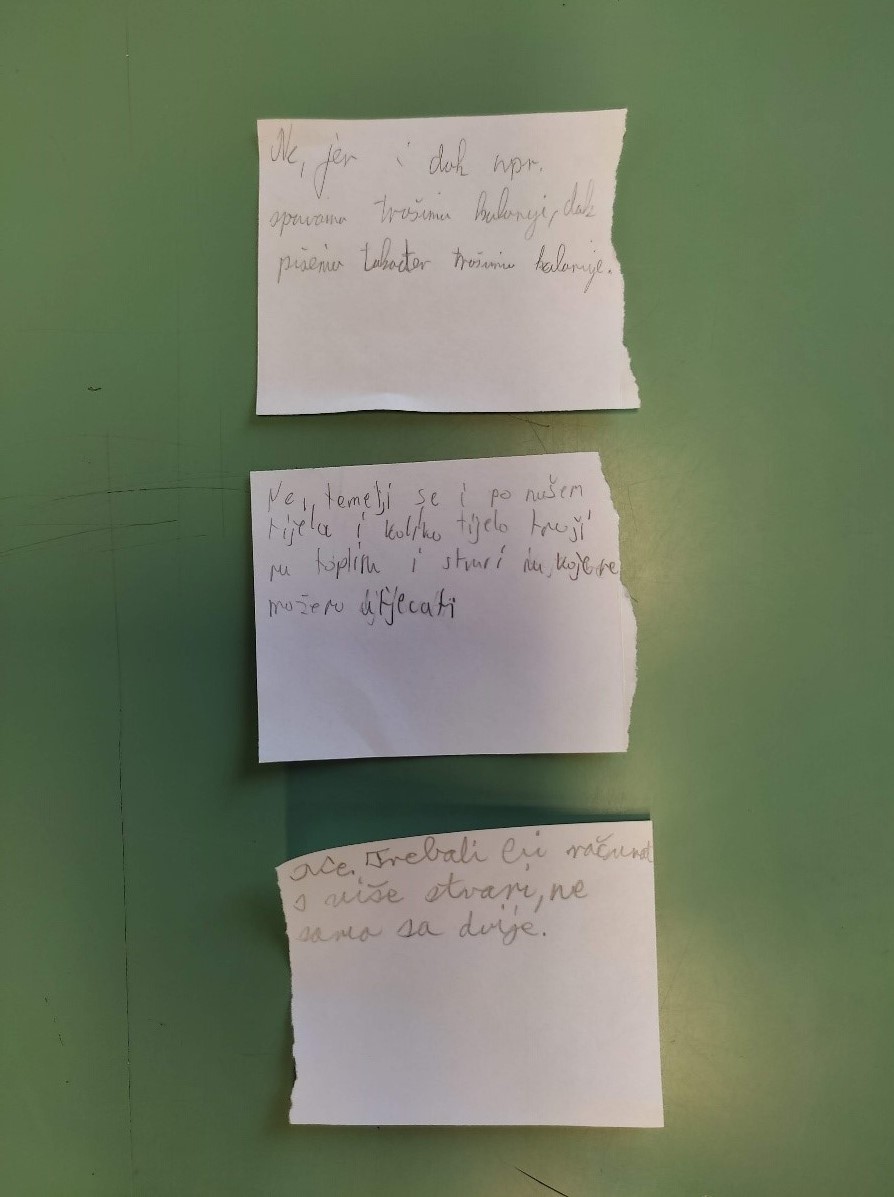 Ne, jer i dok npr.
spavamo trošimo kalorije, dok
pišemo također trošimo kalorije.
Ne, temelji se i po našem
tijela i koliko tijelo troši
na toplinu i stvari na koje ne
možemo utjecati
Ne. Trebali bi računat
s više stvari, ne
samo sa dvije.